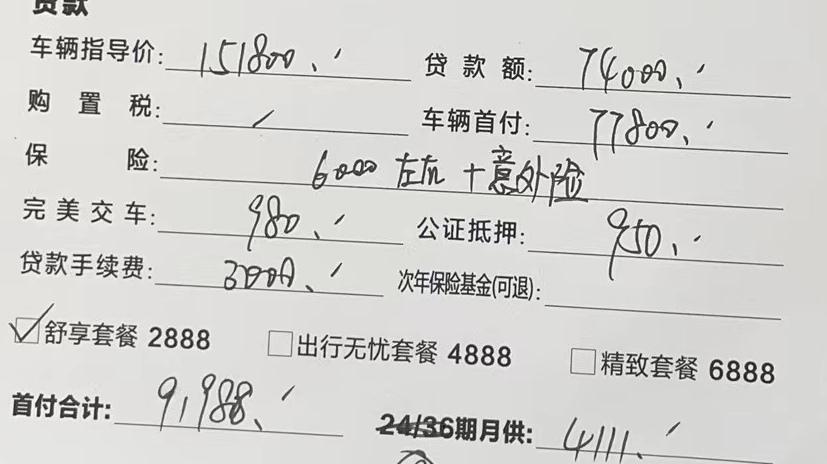 贷款
车辆指导价: 151800. 贷款额: 74000.
购置税: / 车辆首付: 77800.
保险: 6000左右+意外险
完美交车: 980. 公证抵押: 950.
贷款手续费: 3000. 次年保险基金(可退):
舒享套餐 2888 出行无忧套餐 4888 精致套餐 6888
首付合计: 91988. 24/36期月供: 4111.